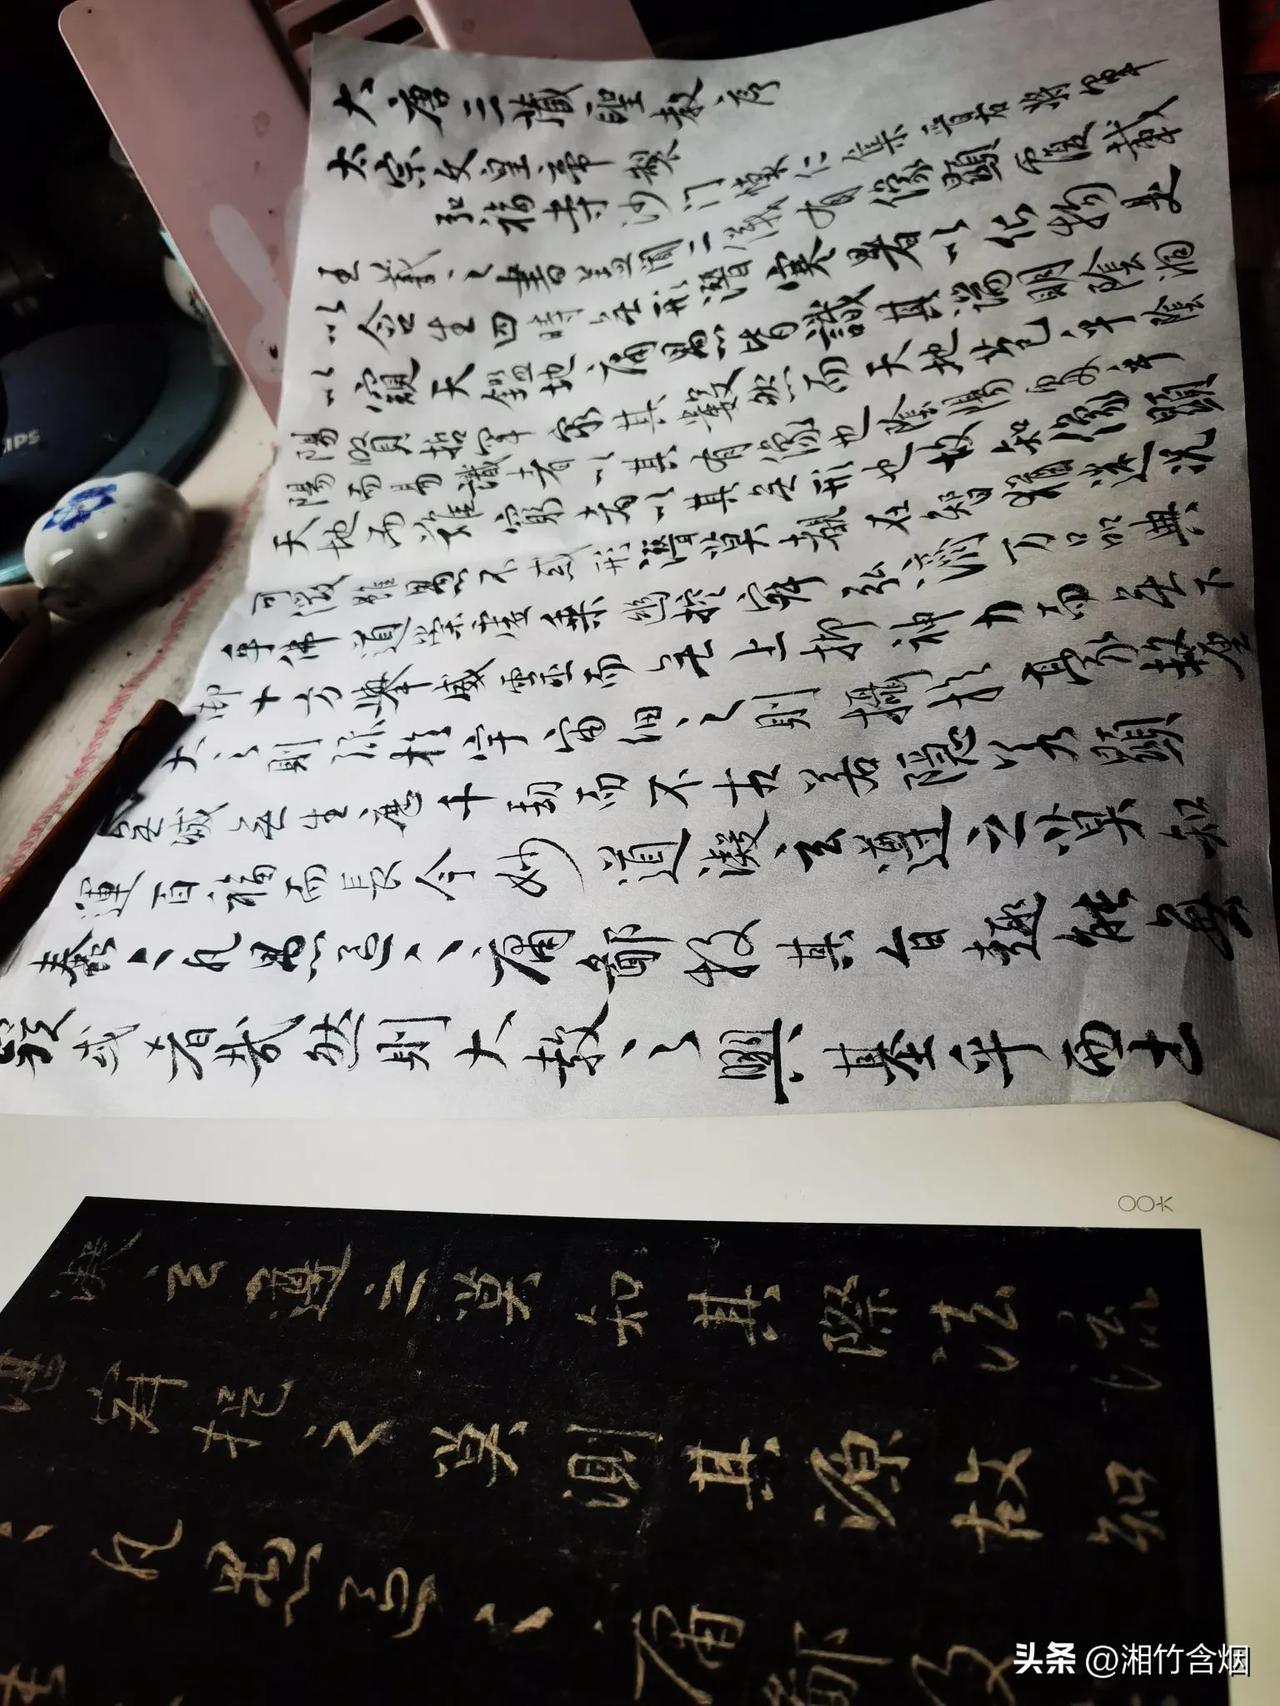 大唐三藏聖教序
太宗文皇帝製
弘福寺沙门懷仁集晉右將軍
王羲之書蓋聞二儀有像顯覆載
以含生四時無形潛寒暑以化物是
以窺天鑑地庸愚皆識其端明陰洞
陽賢哲罕窮其數然而天地苞乎陰
陽而易識者以其有像也陰陽處乎
天地而難窮者以其無形也故知像顯
可徵雖愚不惑形潛莫覩在智猶迷況
乎佛道崇虛乘幽控寂弘濟万品典
御十方舉威靈而無上抑神力而無下
大之則彌於宇宙細之則攝於毫釐
無滅無生歷千劫而不古若隱若顯
運百福而長今妙道凝玄遵之莫知
蠢々凡愚區々庸鄙投其旨趣能無
疑惑者哉然則大教之興基乎西土
〇〇六
凝玄遵之莫知其際法流
湛寂挹之莫測其源故知
々凡愚區々庸鄙投
IPS
头条 @湘竹含烟